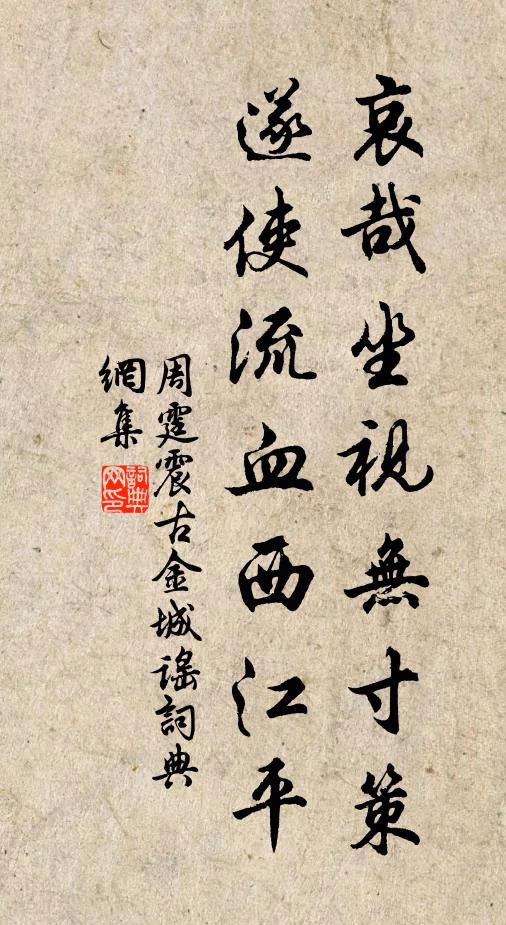 哀哉坐視無寸策
遂使流血西江平
周霆震古金城謠詞典
網集
詞典網印